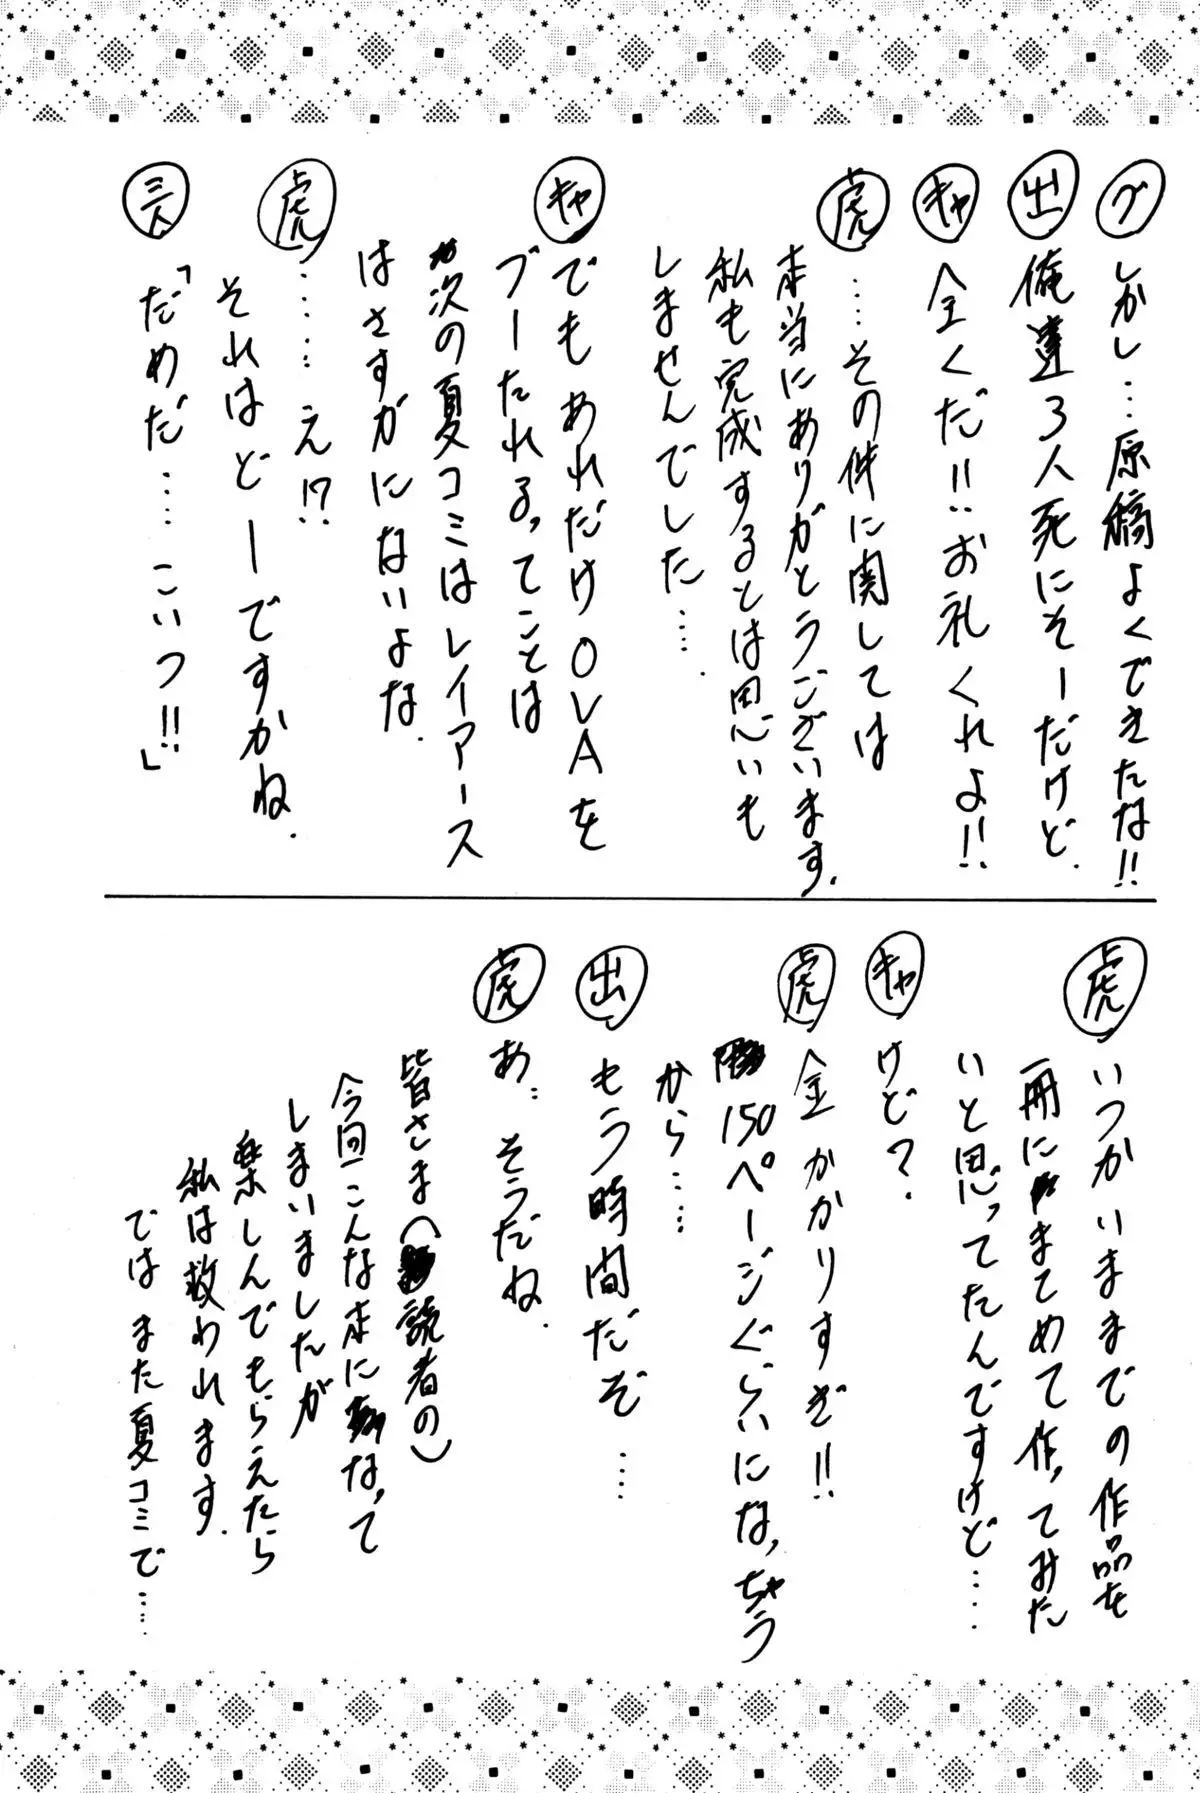 グ しかし…原稿よくできたな!!
出 俺達3人死にそーだけど.
キャ 全くだ!!お礼くれよ!!
虎 …その件に関しては
本当にありがとうございます.
私も完成するとは思いも
しませんでした….
キャ でもあれだけOVAを
ブーたれるってことは
次の夏コミはレイアース
はさすがにないよな.
虎 ……え!?
それはどーですかね.
三人 「だめだ……こいつ!!」
虎 いつかいままでの作品を
一冊にまてめて作ってみた
いと思ってたんですけど……
キャ けど?
虎 金かかりすぎ!!
150ページぐらいになっちゃう
から……
出 もう時間だぞ……
虎 あ、そうだね.
皆さま(読者の)
今回こんな本になって
しまいましたが
楽しんでもらえたら
私は救われます.
ではまた夏コミで……